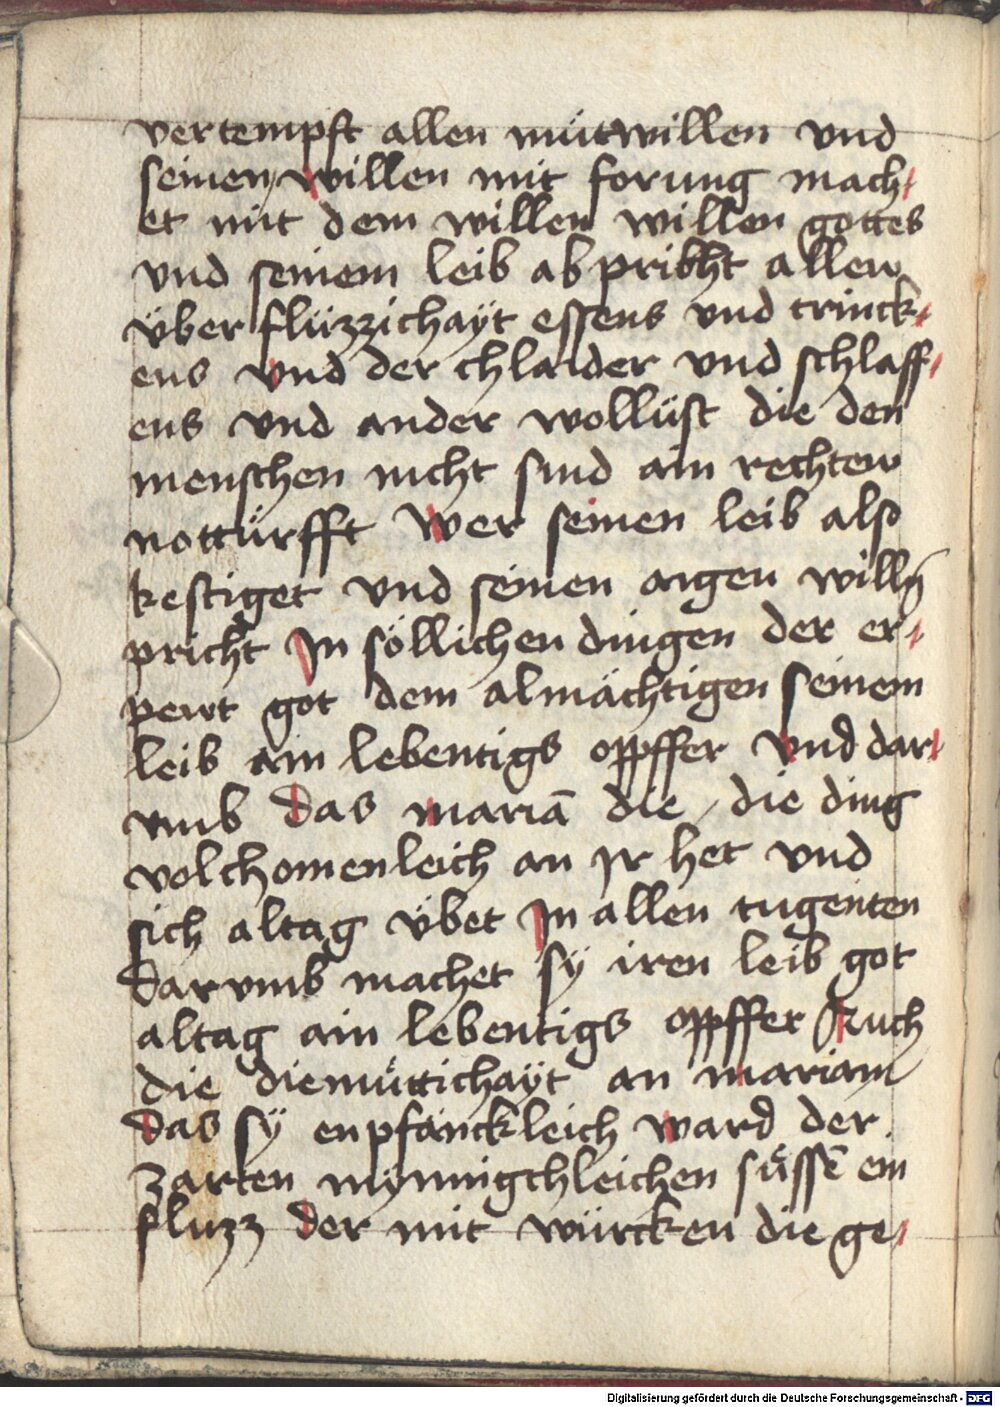 vertempft allen mütwillen vnd
seinen willen mit forung mach
et mit dem willen willen gottes
vnd seinem leib ab pricht allen
über flüzzichaÿt essens vnd trinck
ens vnd der chlaider vnd schlaff
ens vnd ander wollüst die den
menschen nicht sind ain rechten
nottürfft Wer seinen leib also
kestiget vnd seinen aigen willn̄
pricht In söllichen dingen der er
pewt got dem almächtigen seinem
leib ain lebentigs oppffer vnd dar
vmb das mariā die die ding
volchomenleich an Ir het vnd
sich altag übet In allen tugenten
darvmb machet sÿ iren leib got
altag ain lebentigs oppffer Auch
die diemüttichaÿt an mariam
das sÿ enpfänckleich ward der
zarten mÿnnigchleichen süssē ein
fluzz der mit würcken die ge
Digitalisierung gefördert durch die Deutsche Forschungsgemeinschaft - DFG